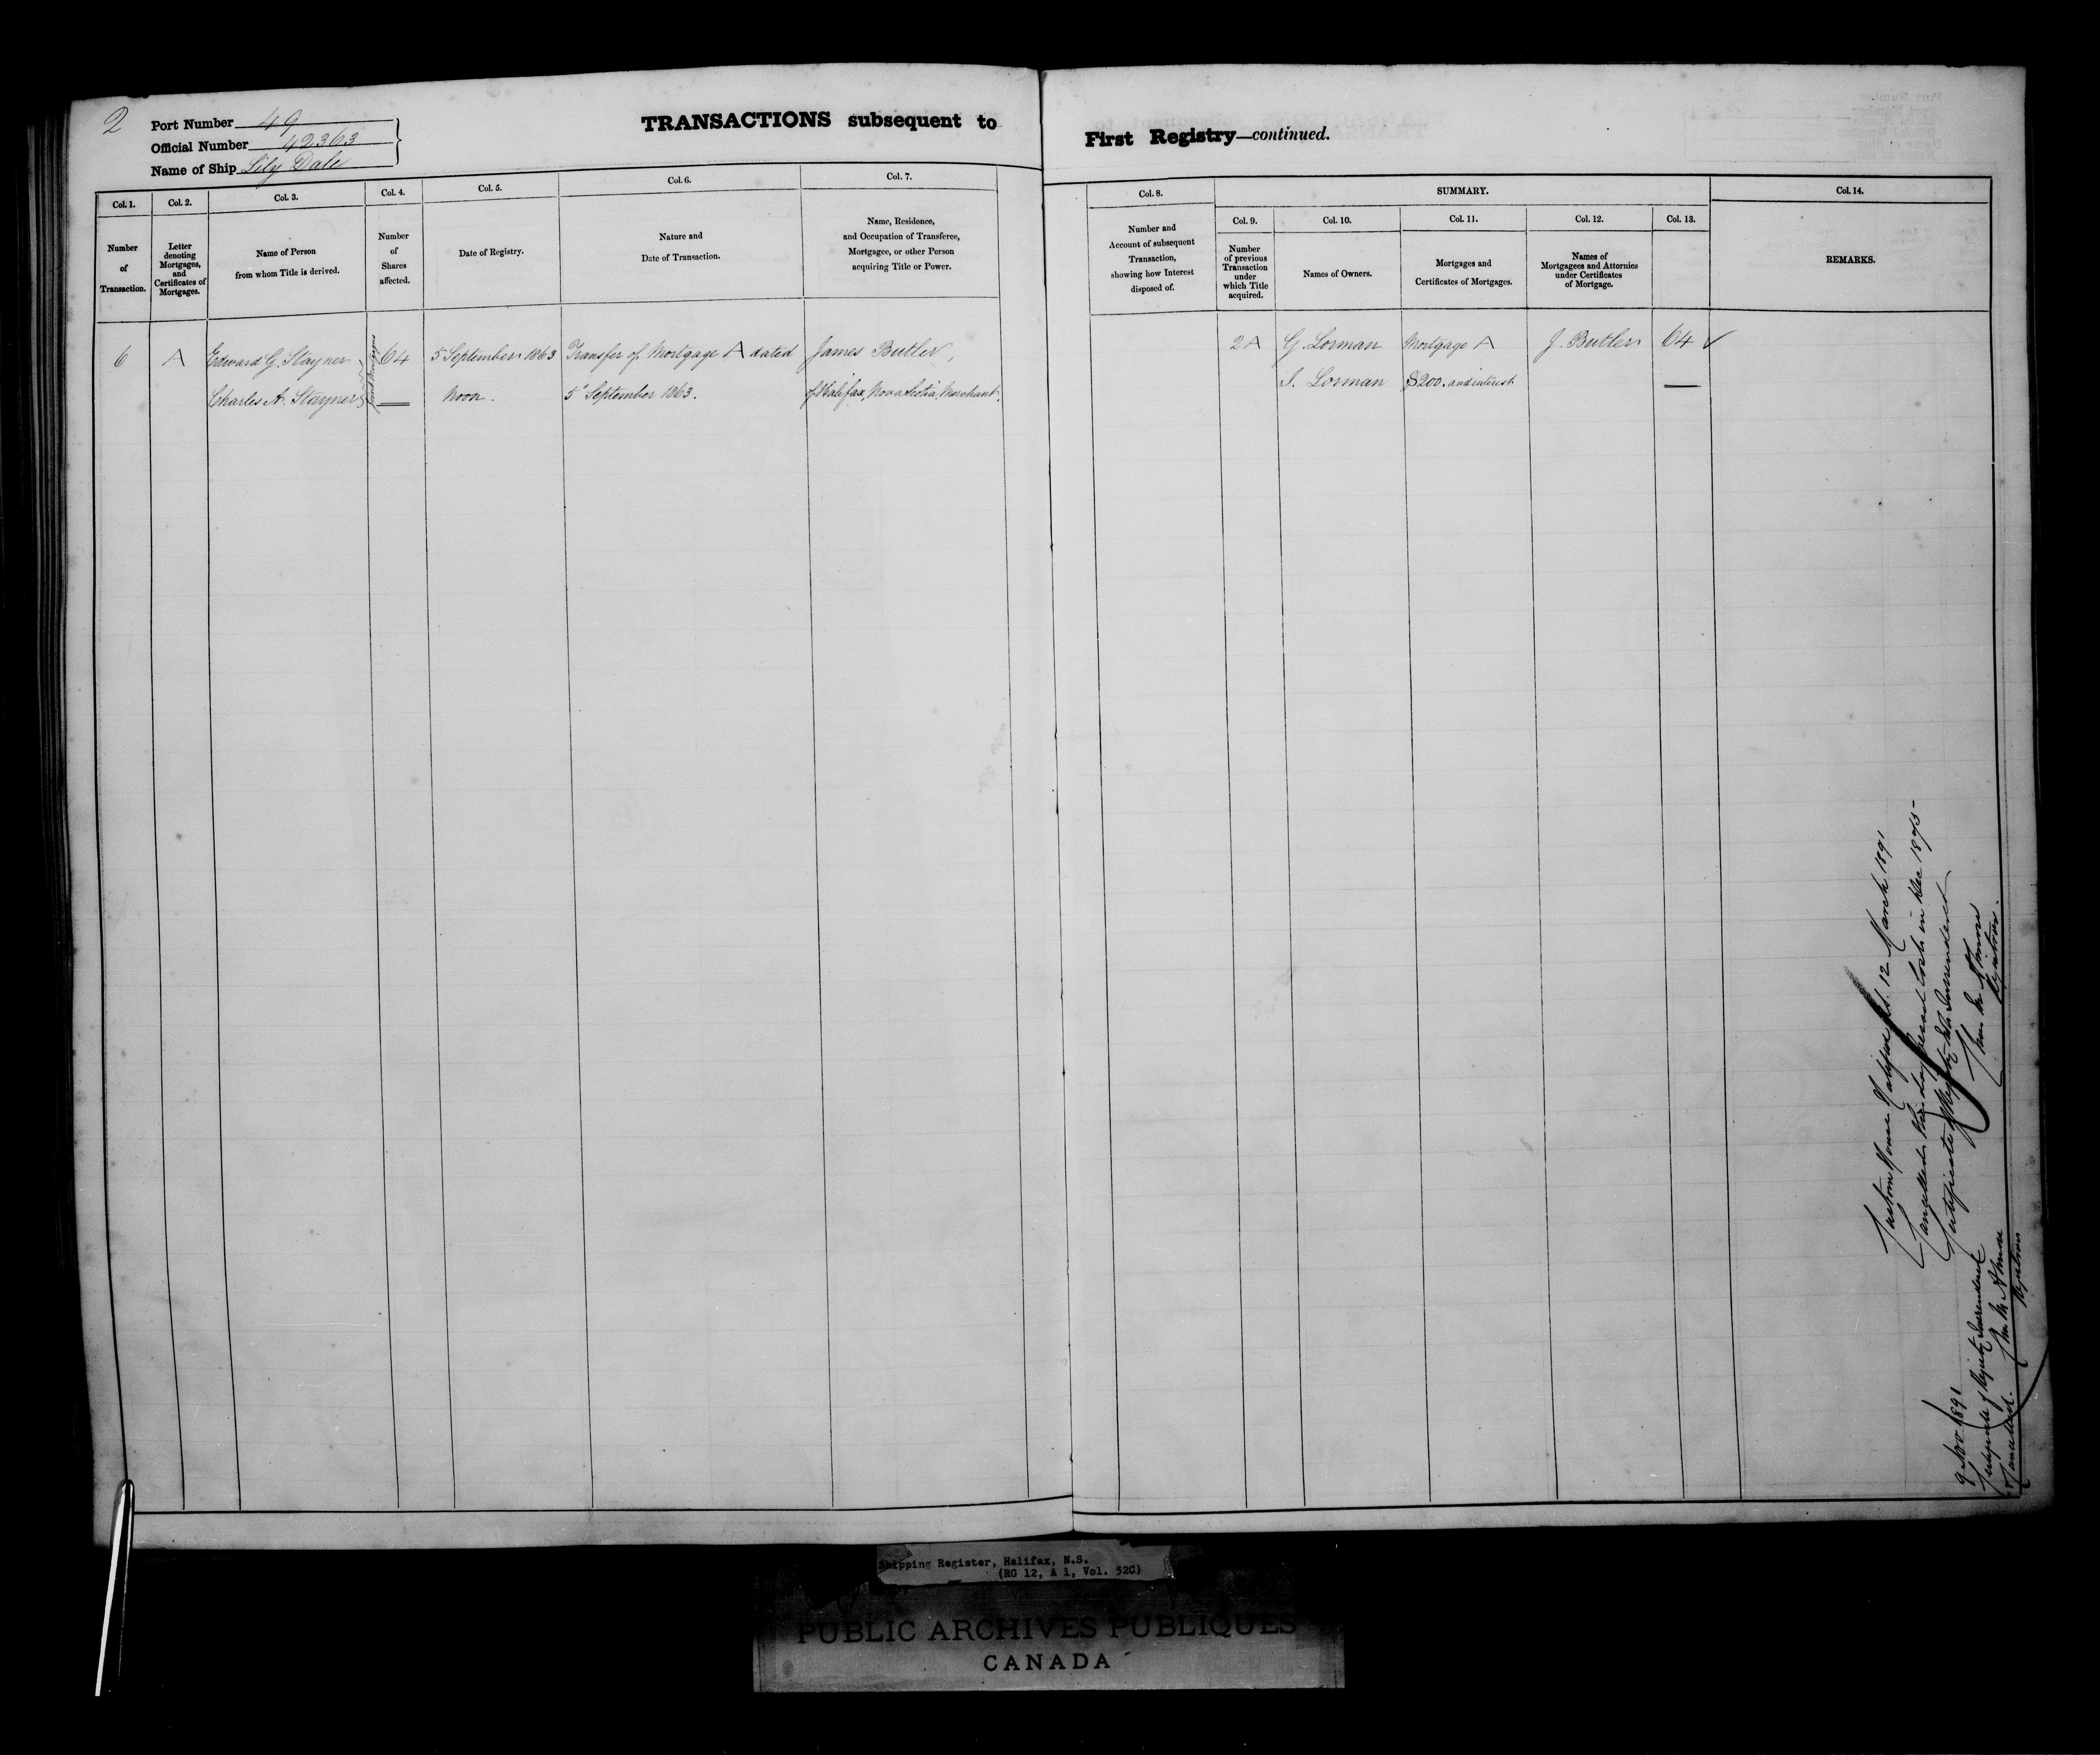 2
Port Number 49
Official Number 42363
Name of Ship Lily Dale
TRANSACTIONS subsequent to
First Registry—continued.
Col. 1.
Number
of
Transaction.
Col. 2.
Letter
denoting
Mortgages,
and
Certificates of
Mortgages.
Col. 3.
Name of Person
from whom Title is derived.
Col. 4.
Number
of
Shares
affected.
Col. 5.
Date of Registry.
Col. 6.
Nature and
Date of Transaction.
Col. 7.
Name, Residence,
and Occupation of Transferee,
Mortgagee, or other Person
acquiring Title or Power.
Col. 8.
Number and
Account of subsequent
Transaction,
showing how Interest
disposed of.
SUMMARY.
Col. 9.
Number
of previous
Transaction
under
which Title
acquired.
Col. 10.
Names of Owners.
Col. 11.
Mortgages and
Certificates of Mortgages.
Col. 12.
Names of
Mortgagees and Attornies
under Certificates
of Mortgage.
Col. 13.
Col. 14.
REMARKS.
6 A Edward G. Stayner 64 5 September 1863 Transfer of Mortgage A dated James Butler,
Charles A. Stayner Noon. 5th September 1863. of Halifax, Nova Scotia, Merchant.
Joint Mortgagees
2A G. Lorman Mortgage A J. Butler 64 ✓
S. Lorman $200. and interest
Custom House Halifax N.S. 12 March 1891
Cancelled this day Vessel lost in Dec 1875-
Certificate of Registry not surrendered
Wm M
Registrar.
9 Nov 1891
Certificate of Registry surrendered
& Cancelled. Wm M
Registrar
Shipping Register, Halifax, N.S.
(RG 12, A 1, Vol. 52C)
PUBLIC ARCHIVES PUBLIQUES
CANADA